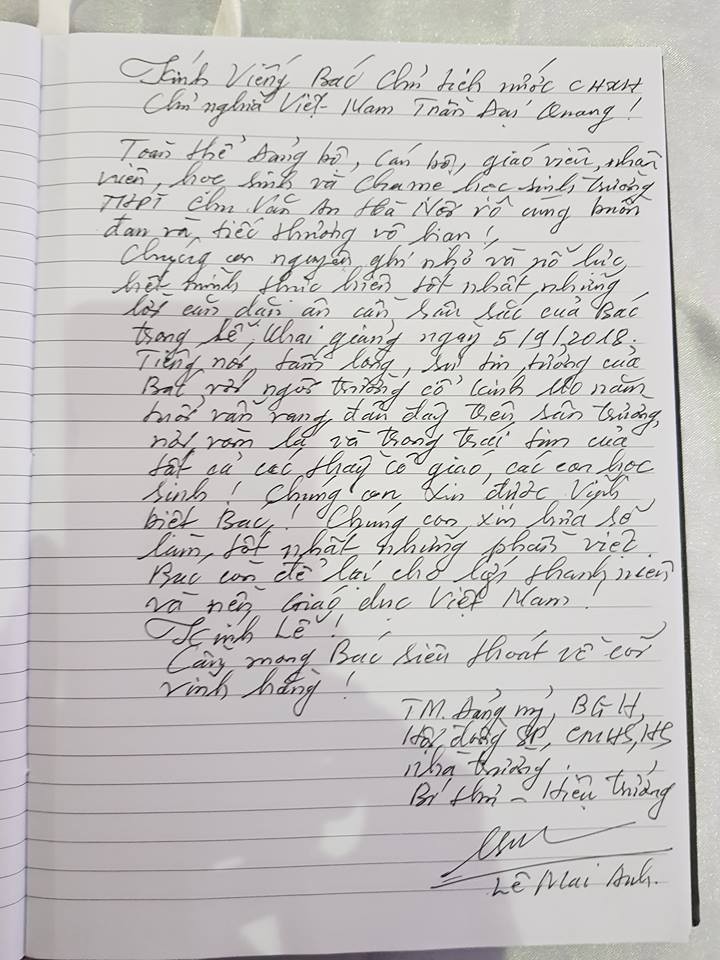 Kính Viếng Bác Chủ tịch nước CHXH
Chủ nghĩa Việt Nam Trần Đại Quang!
Toàn thể Đảng bộ, cán bộ, giáo viên, nhân
viên, học sinh và Cha mẹ học sinh trường
THPT Chu Văn An Hà Nội vô cùng buồn
đau và tiếc thương vô hạn!
Chúng con nguyện ghi nhớ và nỗ lực
hết mình thực hiện tốt nhất những
lời căn dặn ân cần, sâu sắc của Bác
trong Lễ Khai giảng ngày 5/9/2018.
Tiếng nói, tấm lòng, sự tin tưởng của
Bác với ngôi trường cổ kính 110 năm
tuổi vẫn vang đâu đây trên sân trường,
nơi vòm lá và trong trái tim của
tất cả các thầy cô giáo, các con học
sinh! Chúng con xin được Vĩnh
biệt Bác! Chúng con xin hứa sẽ
làm tốt nhất những phần việc
Bác còn để lại cho lớp thanh niên
và nền Giáo dục Việt Nam!
Kính Lễ!
Cầu mong Bác siêu thoát về cõi
vĩnh hằng!
TM. Đảng uỷ, BGH,
Hội đồng SP, CMHS, HS
nhà trường.
Bí thư - Hiệu trưởng
Lê Mai Anh.